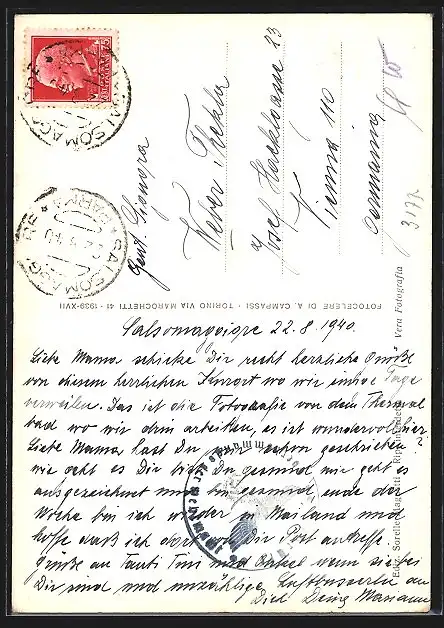 SALSOMAGGIORE
SALSOMAGGIORE
PARMA
22.8.40
Gent. Signora
Weber Thekla
Josef
Vienna 110
Germania
3177
FOTOCELERE DI A. CAMPASSI · TORINO VIA MAROCHETTI 41 · 1939-XVII
Vera Fotografia
Ediz. Sorelle
Salsomaggiore 22.8.1940.
Liebe Mama schicke Dir recht herzliche Grüße
von diesem herrlichen Kurort wo wir einige Tage
verweilen. Das ist die Fotografie von dem Thermal
bad wo wir dem arbeiten, es ist wundervoll hier
Liebe Mama hast Du mir schon geschrieben?
wie geht es Dir bist Du gesund mir geht es
ausgezeichnet und bin gesund ende der
Woche bin ich wieder in Mailand und
hoffe daß ich dort von Dir Post antreffe.
Grüße an Tanti Tini und Onkel wenn sie bei
Dir sind und unzählige Luftbusserln an
Dich Deine Mariann